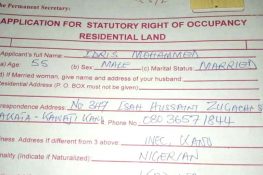 The Permanent Secretary:
APPLICATION FOR STATUTORY RIGHT OF OCCUPANCY
RESIDENTIAL LAND
Applicant's full Name IDRIS MOHAMMED
(a) Age 55 (b) Sex MALE (c) Marital Status MARRIED
(d) If Married woman, give name and address of your husband
Residential Address (P. O. BOX must not be given)
respondence Address No 347 ISAH HUSSAINI
Phone No 080 36571844
iness Address if different from 3 above INEC, KANO
onality (indicate if Naturalized) NIGERIAN